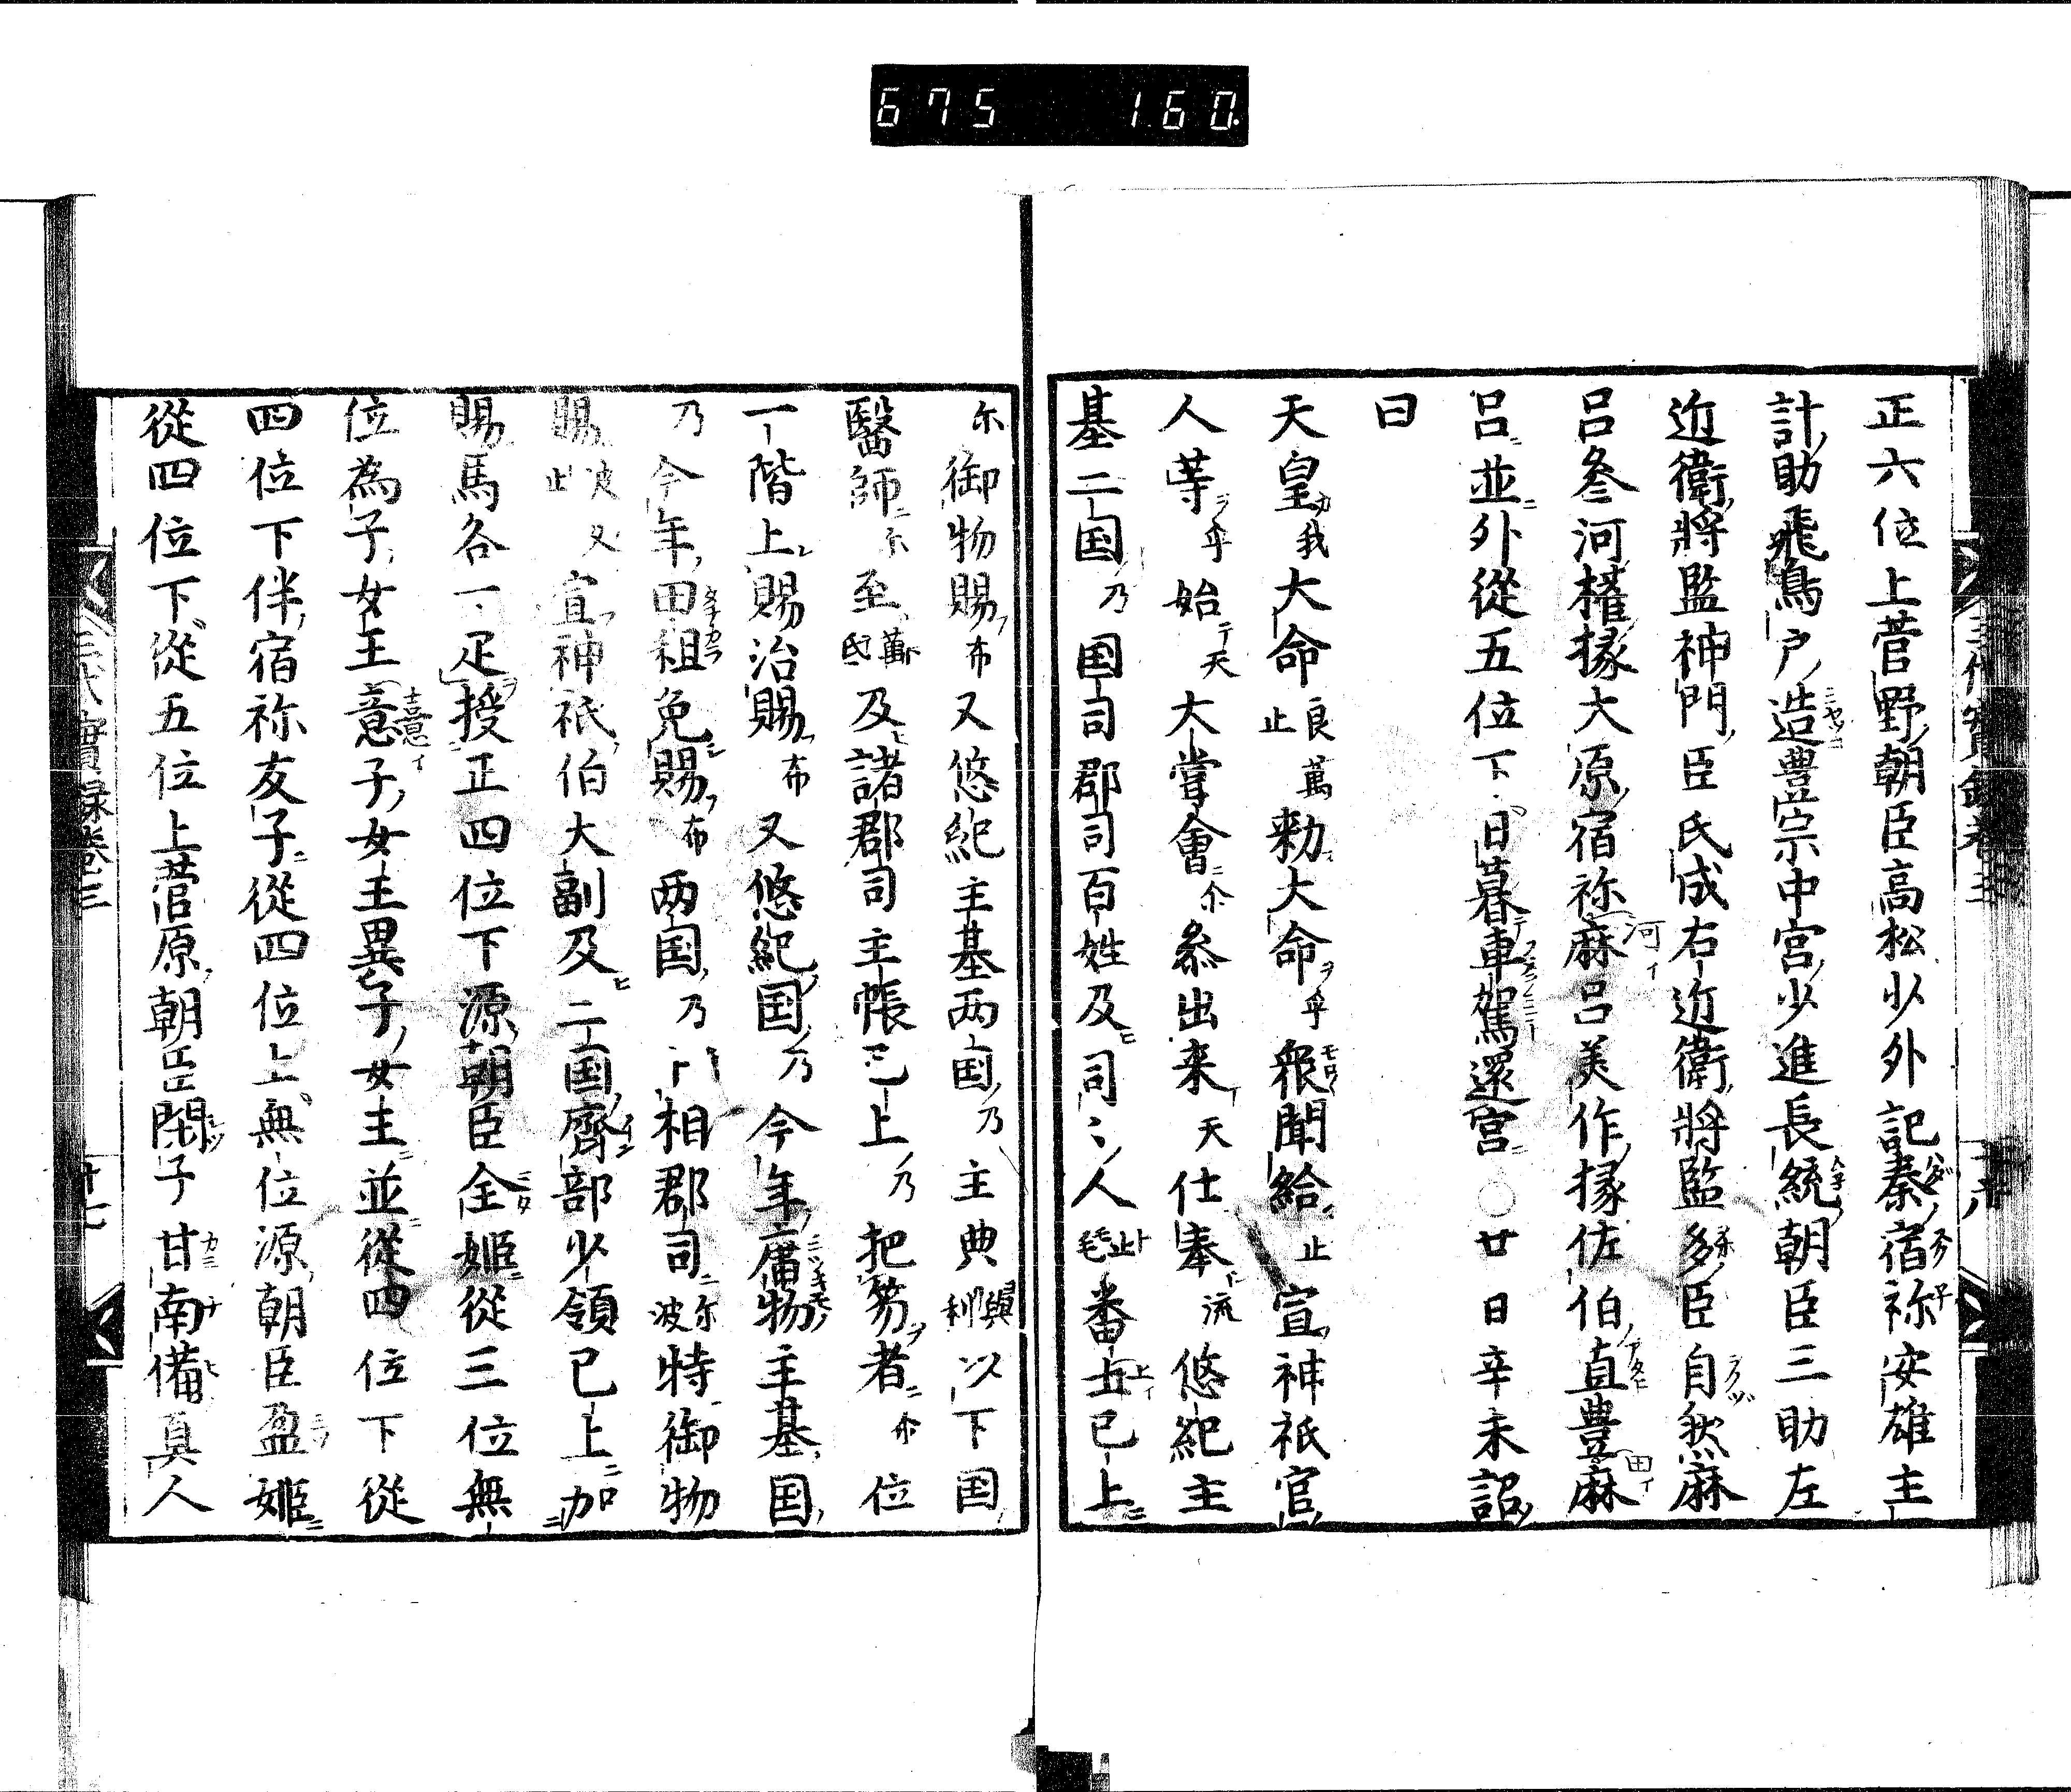 675 160
正六位上菅野朝臣高松少外記秦宿祢安雄主
計助飛鳥戸造豊宗中宮少進長統朝臣三助左
近衛將監神門臣氏成右近衛將監多臣自然麻
呂参河権掾大原宿祢麻呂美作掾佐伯直豊麻
呂並外從五位下日暮車駕還宮○廿日辛未詔
曰
天皇我大命良萬止勅大命乎衆聞給止宣神祇官
人等乎始天大甞會尓参出来天仕奉流悠紀主
基二国乃国司郡司百姓及司〻人止毛番上已上
尓御物賜布又悠紀主基两国乃主典與利以下国
醫師尓至萬氐及諸郡司主帳已上乃把笏者尓位
一階上賜治賜布又悠紀国乃今年庸物主基国
乃今年田租免賜布两国乃相郡司尓波特御物
賜波止又宣神祇伯大副及二国齋部少領已上加
賜馬各一疋授正四位下源朝臣全姫從三位無
位為子女王意子女王異子女王並從四位下從
四位下伴宿祢友子從四位上無位源朝臣盈姫
從四位下從五位上菅原朝臣閑子甘南備真人
三代實録卷三
十七